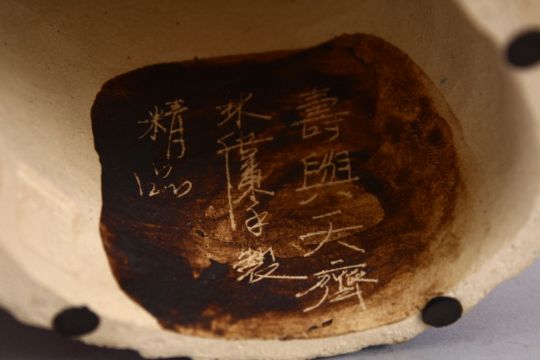 壽與天齊
林手製
精品